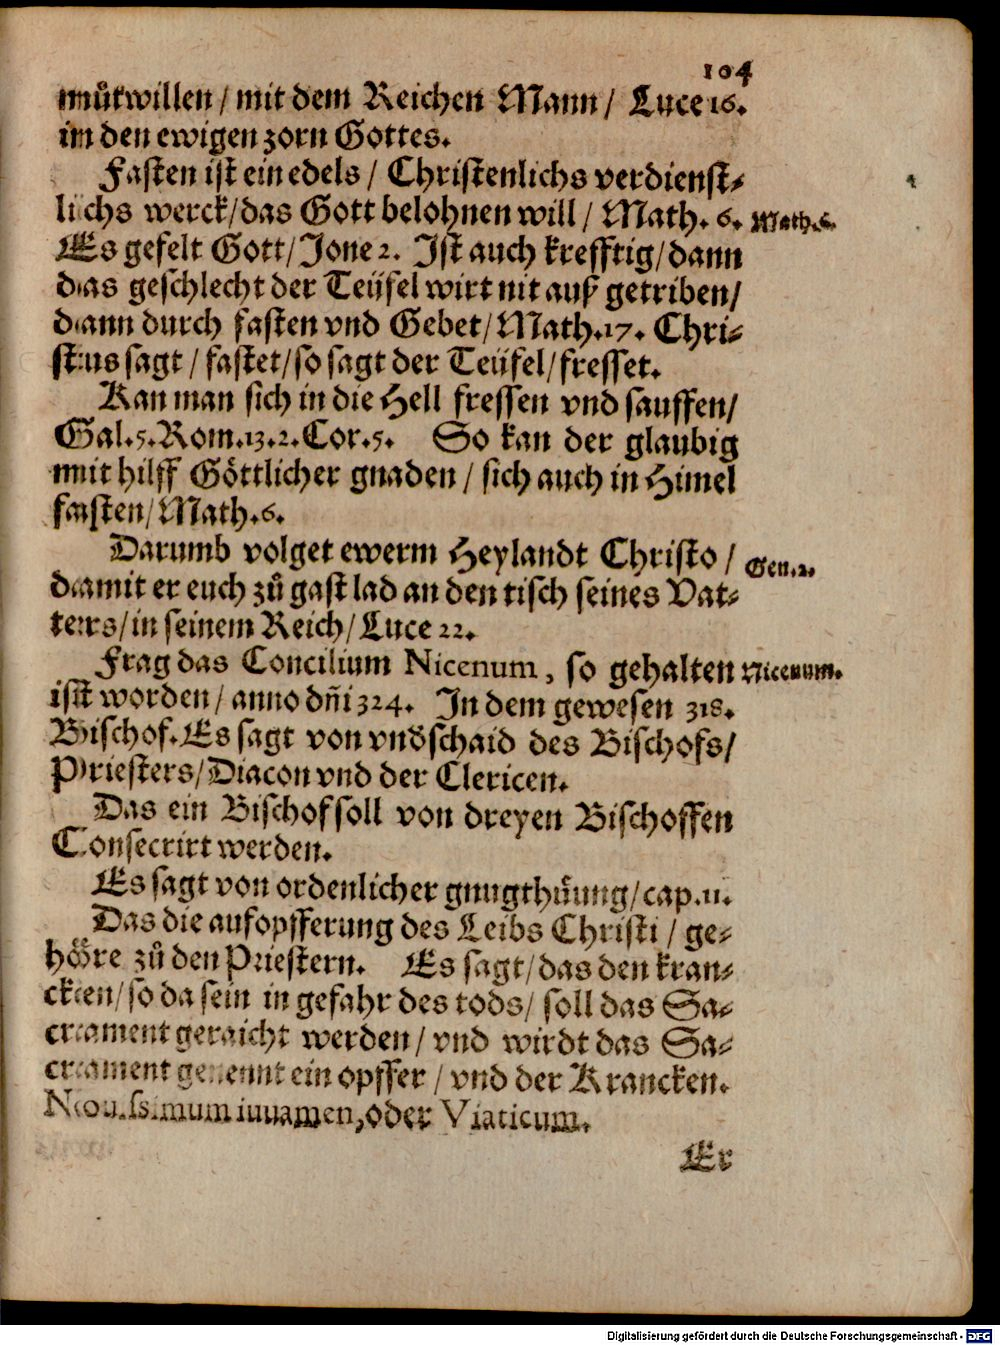 104
můtwillen / mit dem Reichen Mann / Luce 16.
in den ewigen zorn Gottes.
Fasten ist ein edels / Christenlichs verdienst-
lichs werck / das Gott belohnen will / Math. 6. Math. 6.
Es gefelt Gott / Jone 2. Ist auch krefftig / dann
das geschlecht der Teüfel wirt nit auß getriben /
dann durch fasten vnd Gebet / Math. 17. Chri-
stus sagt / fastet / so sagt der Teüfel / fresset.
Kan man sich in die Hell fressen vnd sauffen /
Gal. 5. Rom. 13. 2. Cor. 5. So kan der glaubig
mit hilff Göttlicher gnaden / sich auch in Himel
fasten / Math. 6.
Darumb volget ewerm Heylandt Christo / Gen. 2.
damit er euch zů gast lad an den tisch seines Vat-
ters / in seinem Reich / Luce 22.
Frag das Concilium Nicenum, so gehalten Nicenum.
ist worden / anno dñi 324. In dem gewesen 318.
Bischof. Es sagt von vndschaid des Bischofs /
Priesters / Diacon vnd der Clericen.
Das ein Bischof soll von dreyen Bischoffen
Consecrirt werden.
Es sagt von ordenlicher gnugthůung / cap. 11.
Das die aufopfferung des Leibs Christi / ge-
höre zů den Priestern. Es sagt / das den kran-
cken / so da sein in gefahr des tods / soll das Sa-
crament geraicht werden / vnd wirdt das Sa-
crament genennt ein opffer / vnd der Krancken.
Nouissimum iuuamen, oder Viaticum.
Er
Digitalisierung gefördert durch die Deutsche Forschungsgemeinschaft - DFG